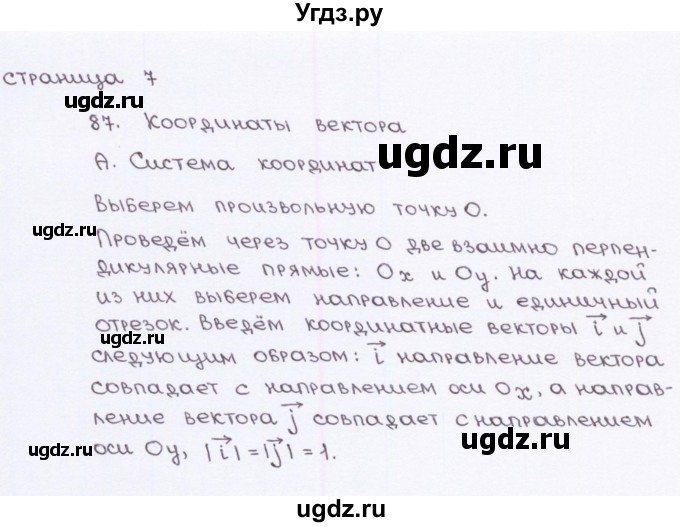 Угдз.ру
страница 7
ugdz.ru
87. Координаты вектора
А. Система координат
ugdz.ru
Выберем произвольную точку О.
ugdz.ru
Проведём через точку О две взаимно перпен-
дикулярные прямые: Ох и Оу. На каждой
ugdz.ru
из них выберем направление и единичный
отрезок. Введём координатные векторы i и j
ugdz.ru
следующим образом: i направление вектора
совпадает с направлением оси Ох, а направ-
ление вектора j совпадает с направлением
ugdz.ru
оси Оу, |i| = |j| = 1.
ugdz.ru
ugdz.ru